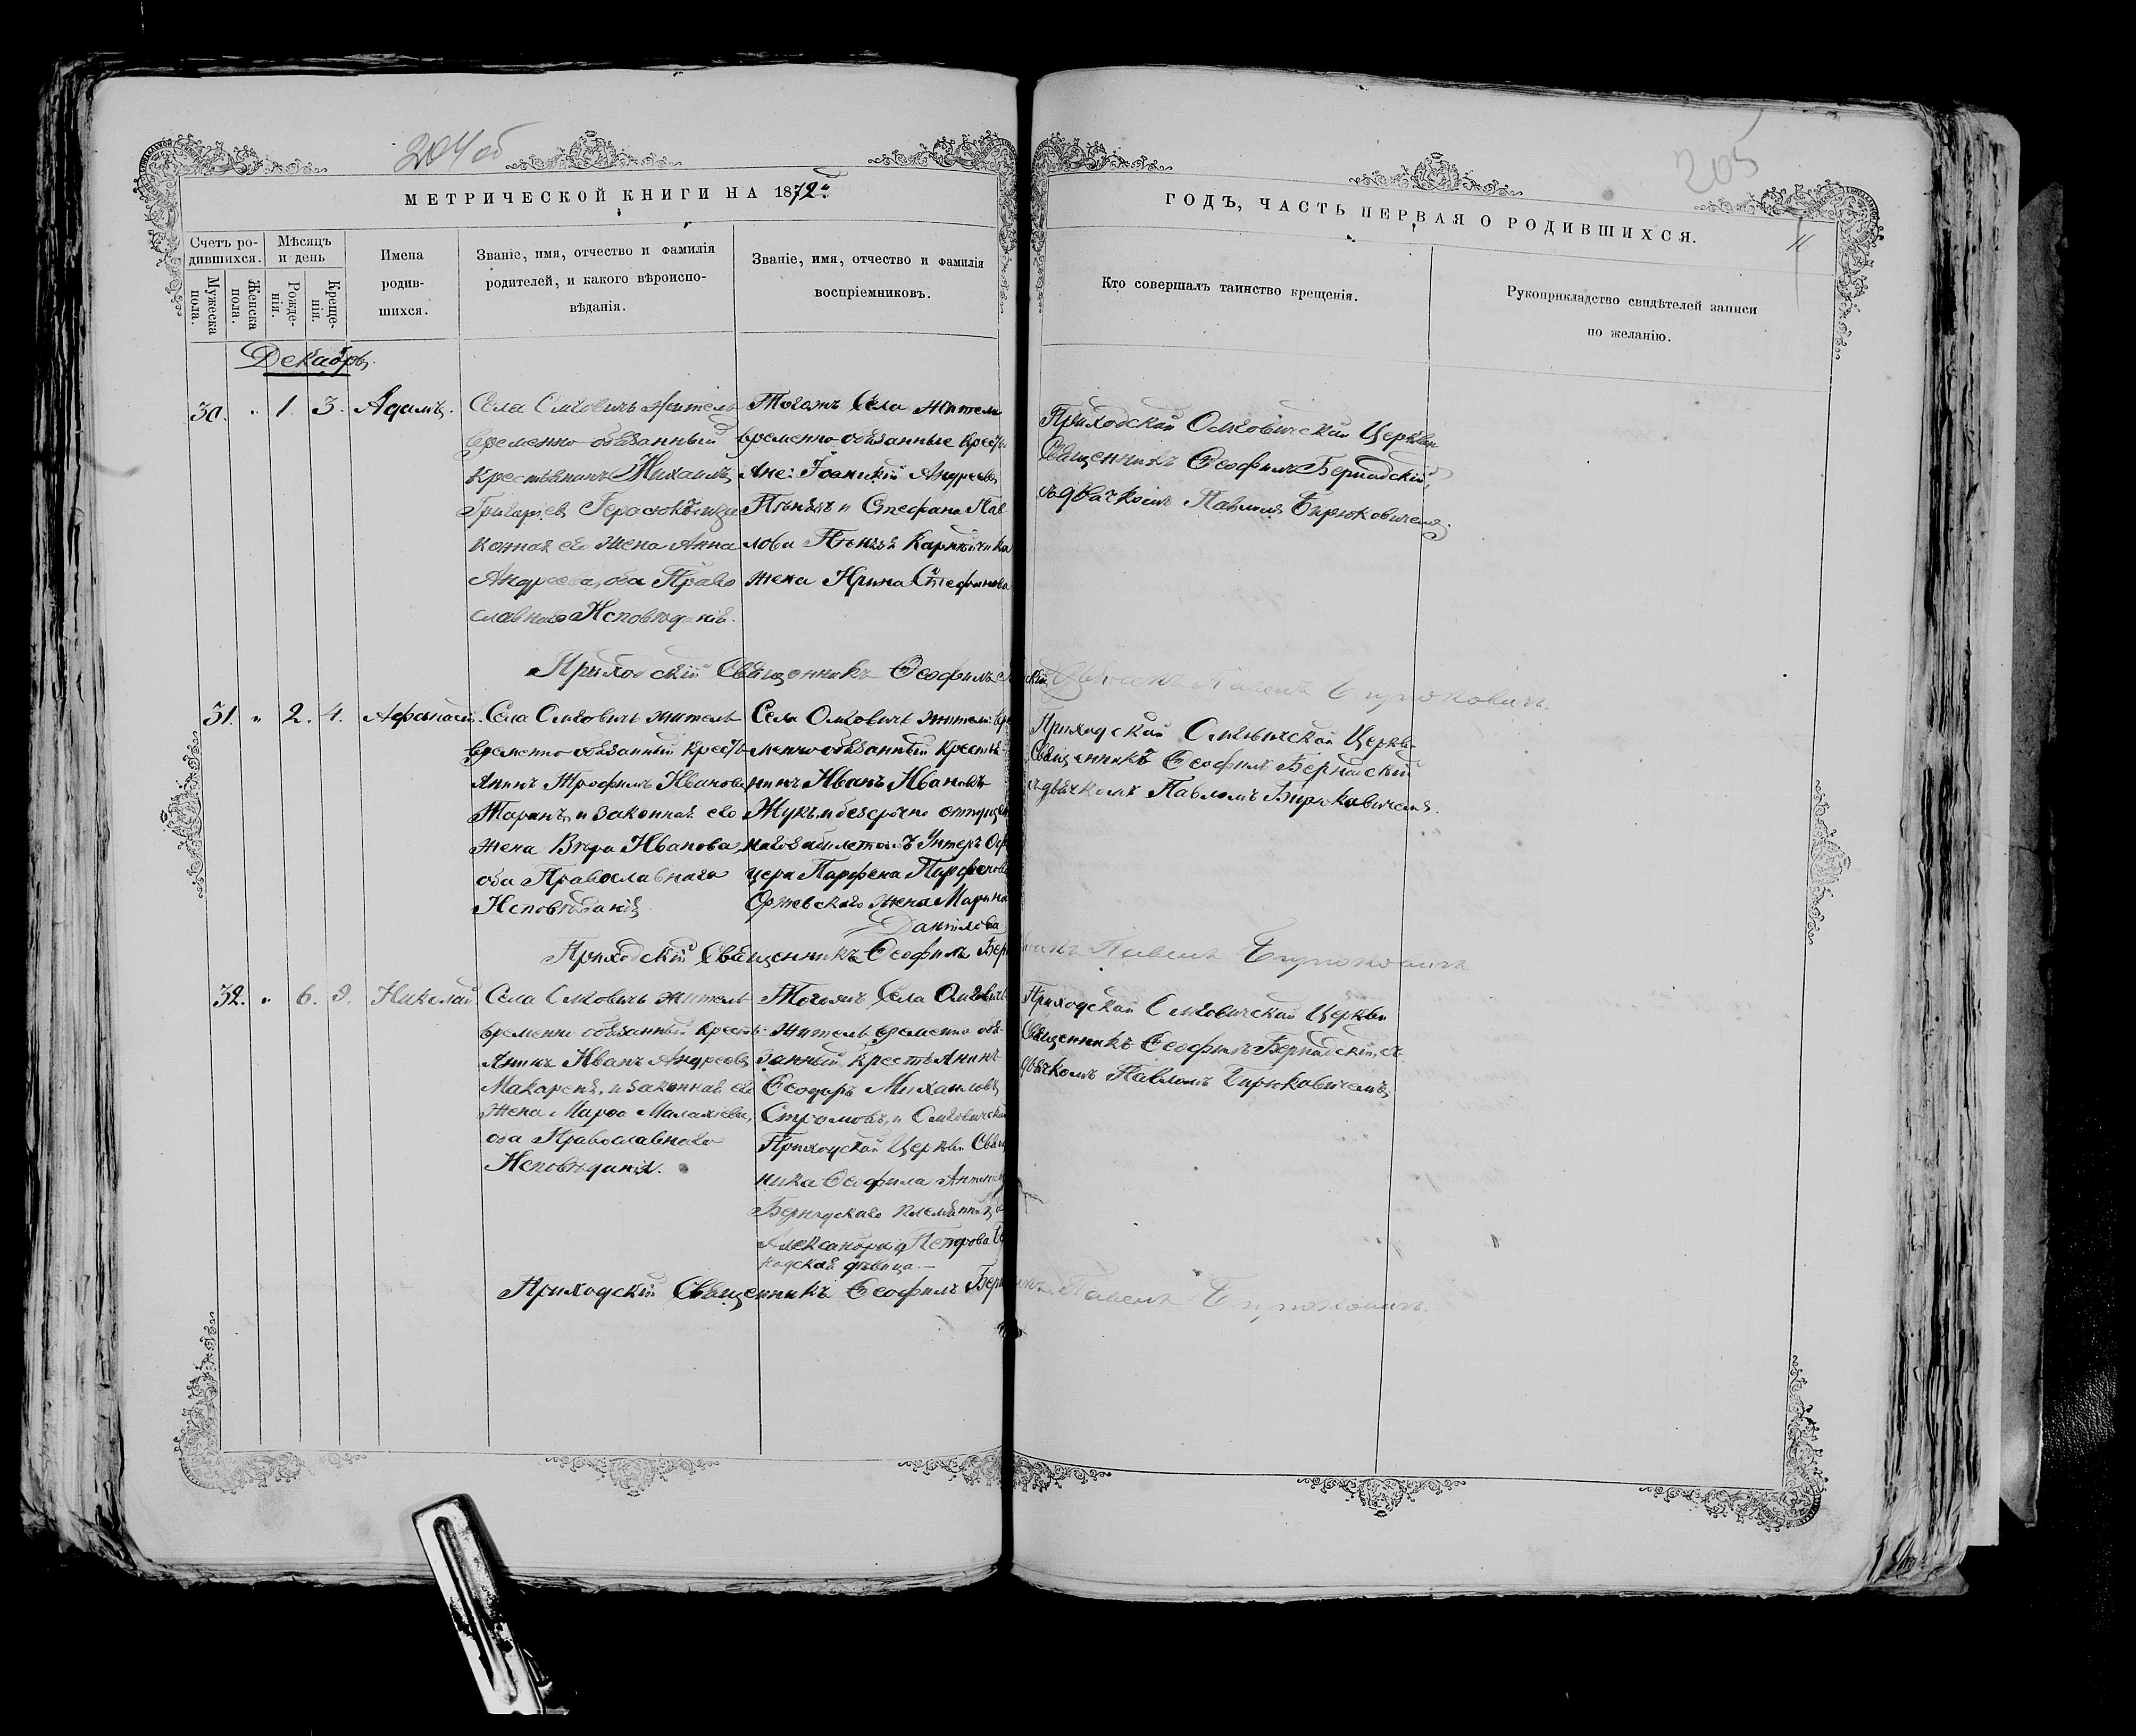 204 об
205
МЕТРИЧЕСКОЙ КНИГИ НА 1872й
ГОДЪ, ЧАСТЬ ПЕРВАЯ О РОДИВШИХСЯ.
11
Счетъ ро-
дившихся.
Мужеска
пола.
Женска
пола.
Мѣсяцъ
и день
Рожде-
нія.
Креще-
нія.
Имена
родив-
шихся.
Званіе, имя, отчество и фамилія
родителей, и какого вѣроиспо-
вѣданія.
Званіе, имя, отчество и фамилія
воспріемниковъ.
Кто совершалъ таинство крещенія.
Рукоприкладство свидѣтелей записи
по желанію.
Декабрь.
30. " 1. 3. Адамъ.
Села Омговичъ житель
временно-обязанный
крестьянинъ Михаилъ
Григоріев
конная его жена Анна
Андреева, оба Право
славнаго Исповѣданія.
Тогожъ Села жители
временно-обязанные крестья-
яне: Андреевъ
и Стефана Пав
лова
жена Ирина Стефанова
Приходской Омговичской Церкви
Священникъ Ѳеофилъ Бернадскій,
съ дьячкомъ Павломъ Бирюковичемъ.
Приходскій Священникъ Ѳеофилъ
Павелъ Бирюковичъ.
31. " 2. 4. Афанасій.
Села Омговичъ житель
временно-обязанный крестья-
янинъ Трофимъ Ивановъ
Таранъ, и законная его
жена Вѣра Иванова,
оба Православнаго
Исповѣданія
Села Омговичъ житель вре
менно обязанный крестья-
нинъ Иванъ Ивановъ
Жукъ, и безсрочно отпущен
наго билетомъ Унтеръ Офи
цера Парфена Парфенова
Оржевскаго жена Марина
Данилова
Приходской Омговичской Церкви
Священникъ Ѳеофилъ Бернадскій
съ дьячкомъ Павломъ Бирюковичемъ.
Приходскій Священникъ Ѳеофилъ Бер
Павелъ Бирюковичъ
32. " 6. 9. Николай
Села Омговичъ житель
временно обязанный крестья-
янинъ Иванъ Андреевъ
Макаренъ, и законная его
жена Марѳа Малахіева,
оба Православнаго
Исповѣданія.
Тогожъ Села Омговичъ
житель временно обя-
занный крестьянинъ
Ѳеодоръ Михаиловъ
и Омговичской
Приходской Церкви Свящ
ника Ѳеофила
Бернадскаго племянница
Александра Петрова Бе
надская дѣвица.—
Приходской Омговичской Церкви
Священникъ Ѳеофилъ Бернадскій, съ
дьячкомъ Павломъ Бирюковичемъ.
Приходскій Священникъ Ѳеофилъ Бер
Павелъ Бирюковичъ.